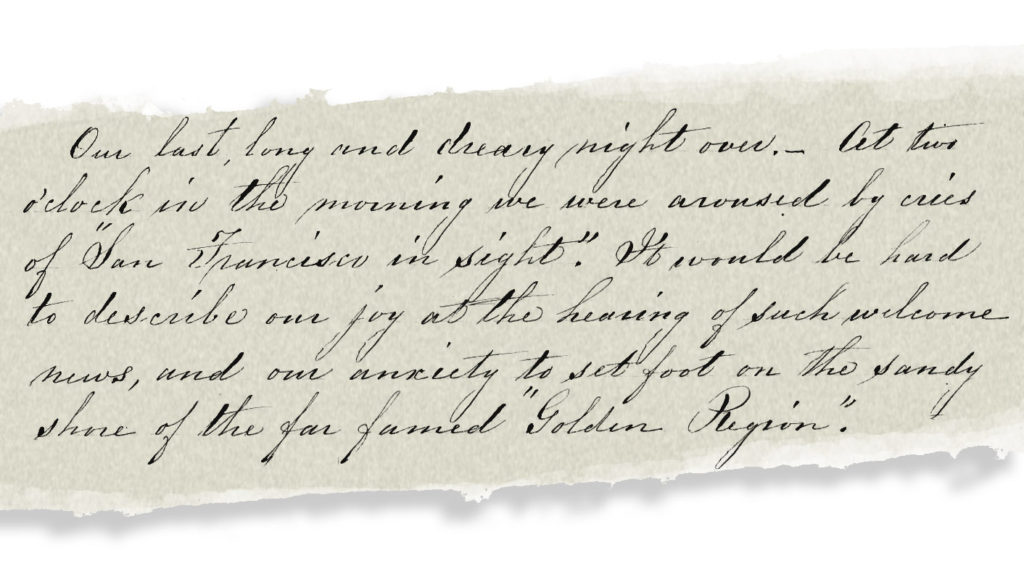 Our last, long and dreary night over. – At two
o'clock in the morning we were aroused by cries
of "San Francisco in sight". It would be hard
to describe our joy at the hearing of such welcome
news, and our anxiety to set foot on the sandy
shore of the far famed "Golden Region".